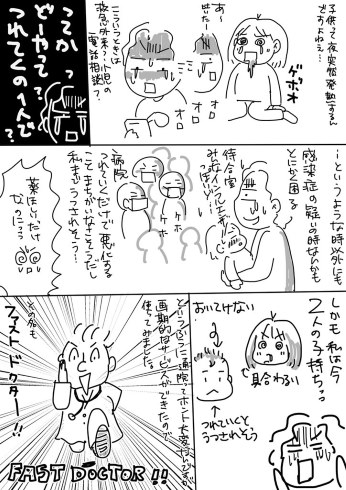 子供って夜突然発熱するん
ですよねぇ…
ゲッホォ
あ〜
出た〜
こういうときは
救急外来?小児の
電話相談?
オロ
オロ
ってかっ
どーやって?
つれてくの一人で?
…というような時以外にも
感染症の疑いの時なんかも
とにかく困る
待合室
みんなインフルエンザで
いっぱい
ケホ
ケホ
病院
つれていくだけで悪化する
ことまちがいなさそうだし
私までうつされそう…
薬ほしいだけ
なのにぃぃ
しかも私は今
2人の子持ちっ
おいてけない
具合わるい
つれていくと
うつされそう
というふうに通院ってホント大変なんですが
画期的なサービスができたので
使ってみました。
その名も
ファストドクター!!
FAST DOCTOR!!